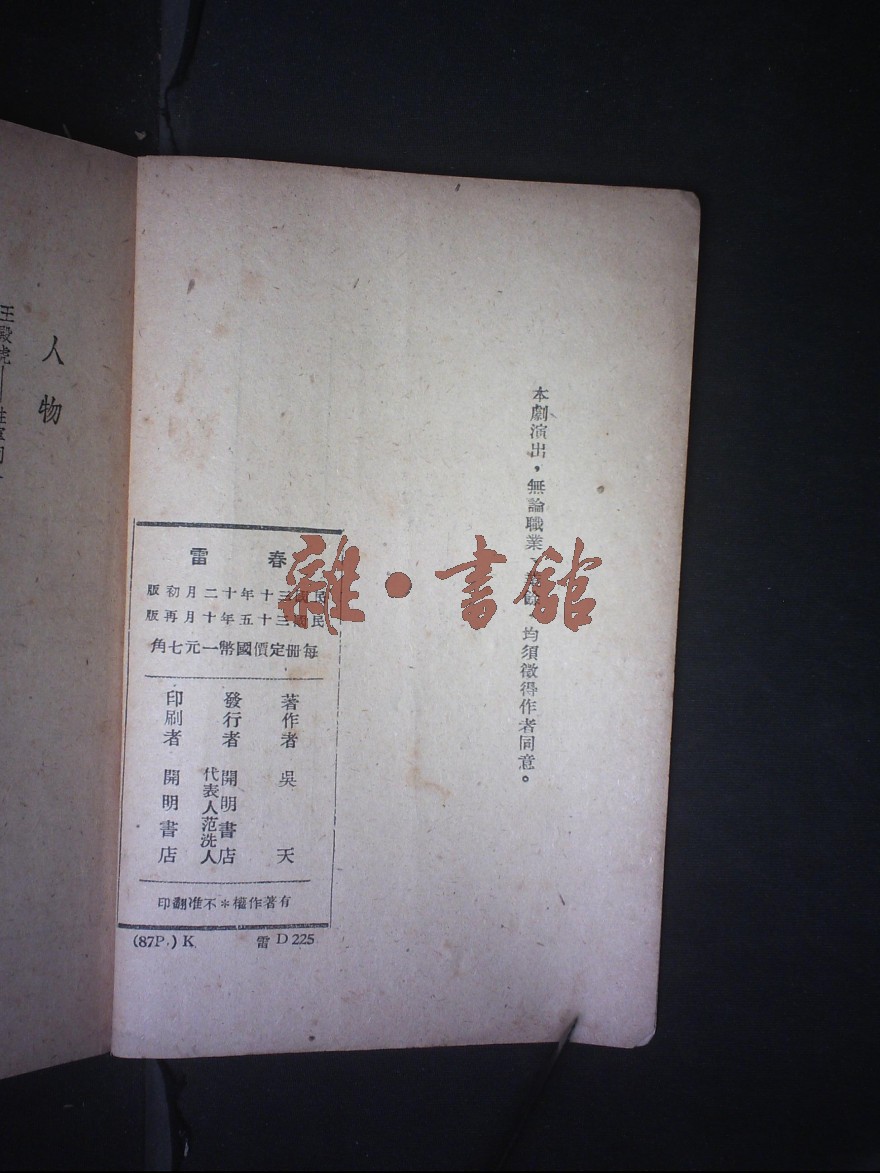 本劇演出，無論職業、業餘，均須徵得作者同意。
春雷
民國三十年十二月初版
民國三十五年十月再版
每冊定價國幣一元七角
著作者 吳天
發行者 開明書店
代表人范洗人
印刷者 開明書店
有著作權＊不准翻印
(87P.) K 雷 D 225
人物
王殿虎
雜·書館